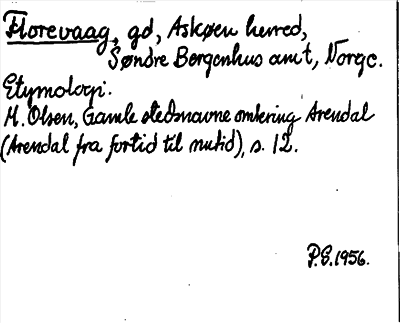 Florevaag, gd, Askøen herred,
Søndre Bergenhus amt, Norge.
Etymologi.
M. Olsen, Gamle stedsnavne omkring Arendal
(Arendal fra fortid til nutid), s. 12.
P.G.1956.